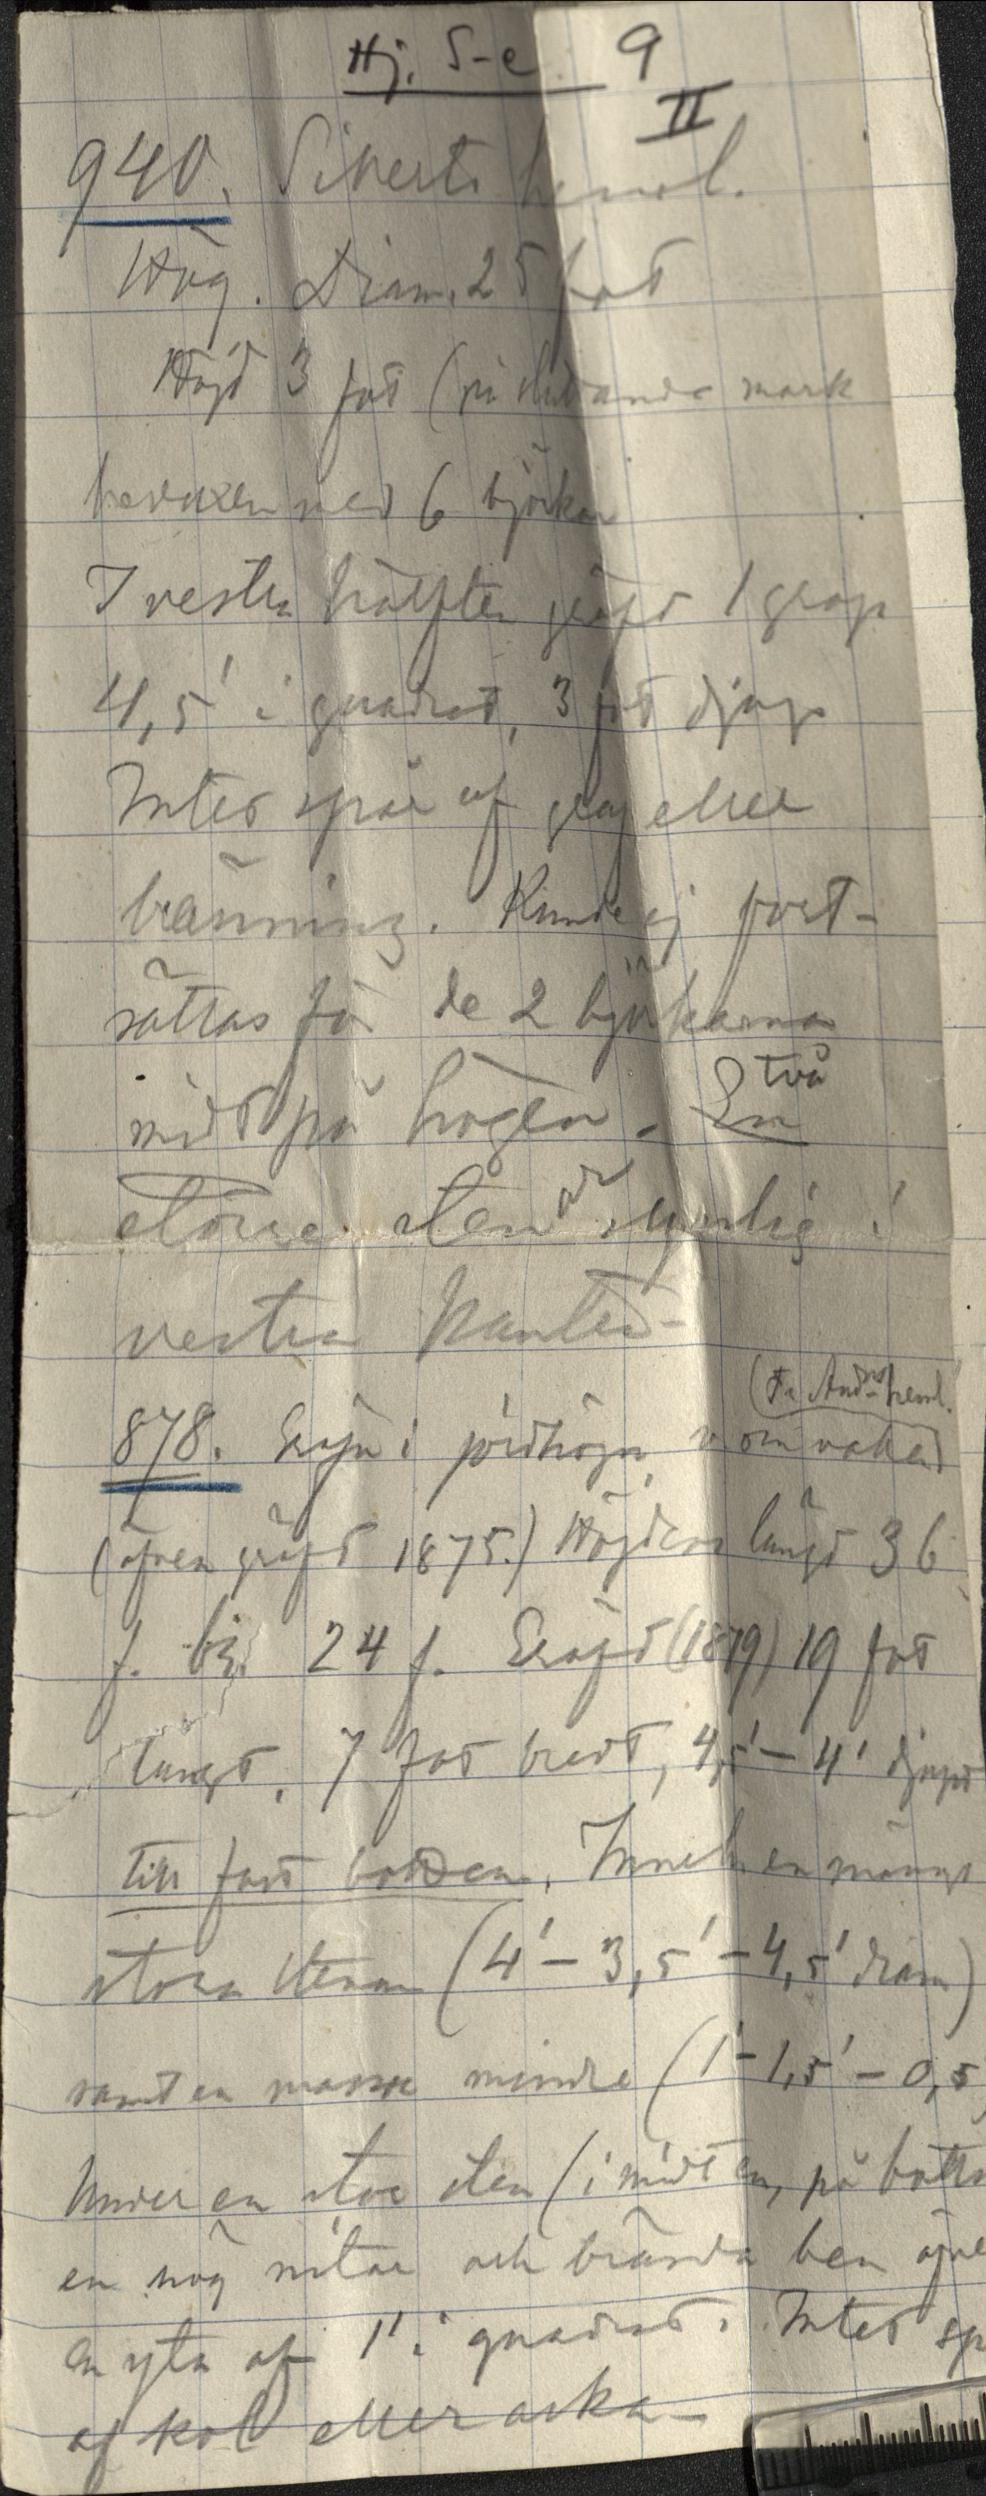 Hj. S-e. 9
II
940. Siverts heml.
Hög. Diam. 25 fot
Höjd 3 fot (på sluttande mark
bevuxen med 6 björkar
I vestra hälften gräfd 1 grop
4,5' i quadrat, 3 fot djup
Intet spår af graf eller
bränning. Kunde ej fort-
sättas för de 2 björkarna
midt på högen. En två
större sten är synlig i
vestra kanten-
(Fr. Andrs heml.
878. Gräfn i jordhögen
(äfven gräfd 1875.) Högens längd 36
f. br. 24 f. Gräfd (1879) 19 fot
långt, 7 fot bredt, 4,5'-4' djupt
till fast botten. Inneh. en mängd
stora stenar (4'-3,5'-4,5' diam)
samt en massa mindre (1'-1,5'-0,5
Under en stor sten (i midten, på bott
en hög sotar och brända ben öfve
en yta af 1' i quadrat. Intet sp
af kol eller aska-